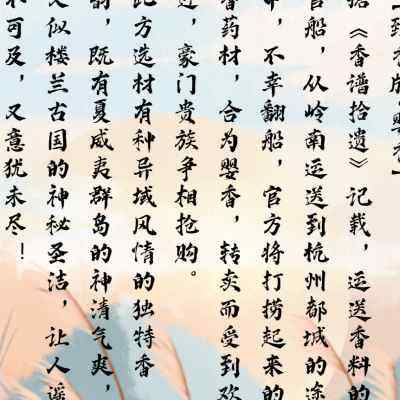 婴香】
据《香谱拾遗》记载，运送香料的
官船，从岭南运送到杭州都城的途
中，不幸翻船，官方将打捞起来的
香药材，合为婴香，转卖而受到欢
迎，豪门贵族争相抢购。
此方选材有种异域风情的独特香
韵，既有夏威夷群岛的神清气爽，
又似楼兰古国的神秘圣洁，让人遥
不可及，又意犹未尽！